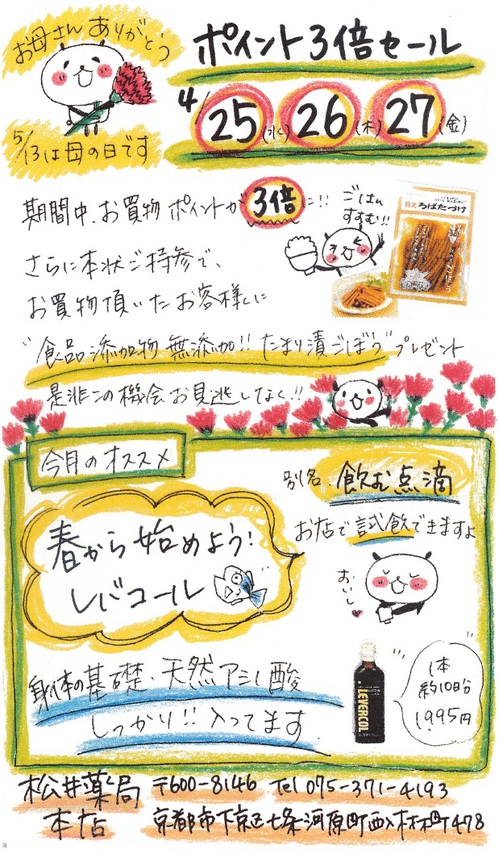 お母さんありがとう
5/13は母の日です
ポイント3倍セール
4/25(水)26(木)27(金)
期間中、お買物ポイントが3倍に!!
ごはんすすむ!!
ろばたづけ
さらに本状ご持参で、
お買物頂いたお客様に
"食品添加物無添加!!たまり漬ごぼう"プレゼント
是非この機会お見逃しなく!!
今月のオススメ
別名 飲む点滴
お店で試飲できますよ
春から始めよう!
レバコール
おいし
身体の基礎・天然アミノ酸
しっかり!!入ってます
LEVERCOL
1本
約10日分
1,995円
松井薬局 〒600-8146 Tel 075-371-4193
本店 京都市下京区七条河原町西入材木町478